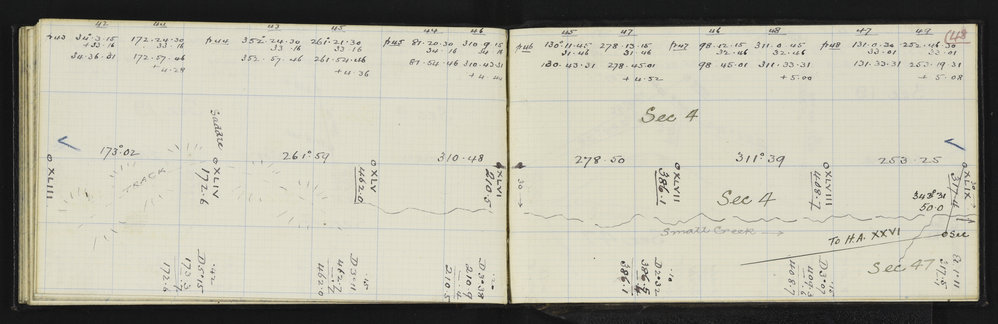 42 44 43 45 44 46
p43 34°.3.15 172.24.30 p44 352.24.30 261.21.30 p45 87.20.30 310.9.15
+33.16 33.16 33.16 33.16 34.16 34.16
34.36.31 172.57.46 352.57.46 261.54.46 87.54.46 310.43.31
+4.29 +4.36 +4.44
173°.02 261°59 310.48
Saddle
TRACK
O XLIII
O XLIV
172.6
O XLV
462.0
O XLVI
210.5
D5°15
173.3
172.6
D3.11
462.7
462.0
D3°38
210.9
210.5
(48
45 47 46 48 47 49
p46 130°.11.45 278.13.15 p47 98.12.15 311.0.45 p48 131.0.30 252.46.30
31.46 31.46 32.46 32.46 33.01 33.01
130.43.31 278.45.01 98.45.01 311.33.31 131.33.31 253.19.31
+4.52 +5.00 +5.08
Sec 4
278.50 311°39 253.25
30
O XLVII
386.1
O XLVIII
408.7
O XLIX
317.6
Sec 4
343°31
50.0
Small Creek
To H.A. XXVI
O Sec
Sec 47
D2°32
386.5
386.1
D3°07
408.7
317.5